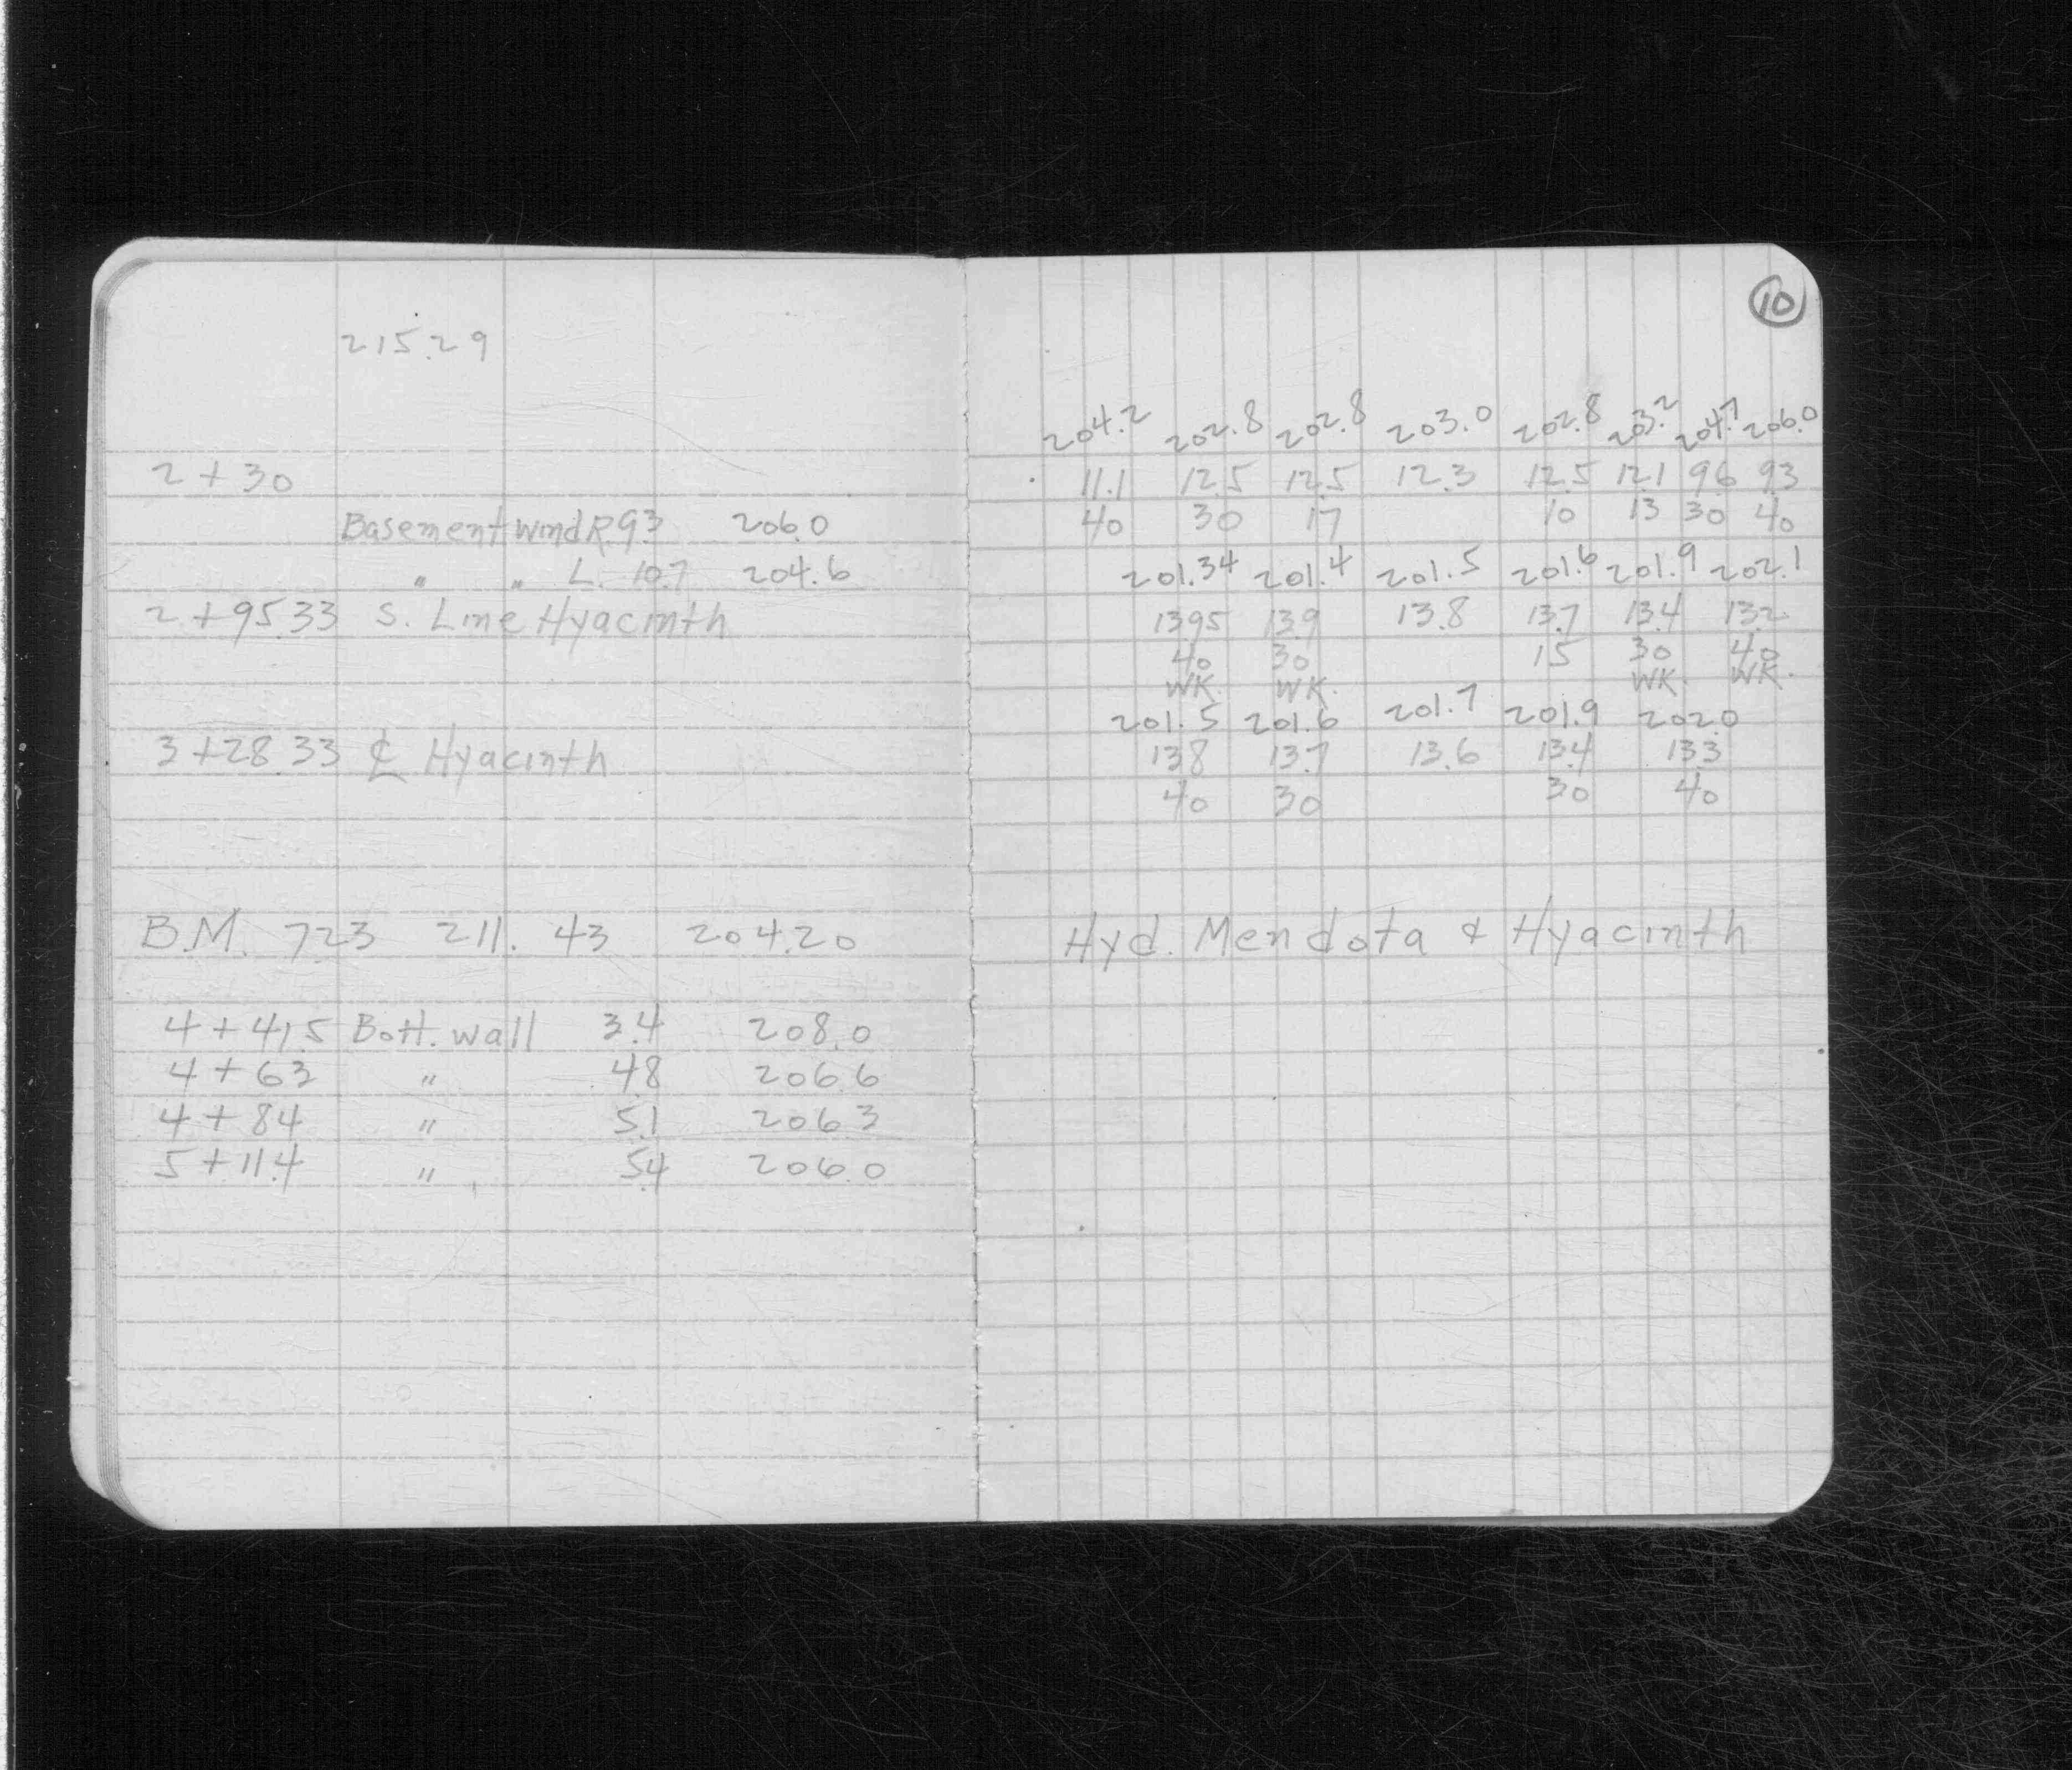 215.29
2+30
Basement Wind R 9.3 206.0
" " L. 10.7 204.6
2+95.33 S. Line Hyacinth
3+28.33 ₵ Hyacinth
B.M. 7.23 211.43 204.20
4+41.5 Bott. wall 3.4 208.0
4+63 " 4.8 206.6
4+84 " 5.1 206.3
5+11.4 " 5.4 206.0
10
204.2 202.8 202.8 203.0 202.8 203.2 204.7 206.0
11.1 12.5 12.5 12.3 12.5 12.1 9.6 9.3
40 30 17 10 13 30 40
201.34 201.4 201.5 201.6 201.9 202.1
13.95 13.9 13.8 13.7 13.4 13.2
40 30 15 30 40
WK. WK. WK. WK.
201.5 201.6 201.7 201.9 202.0
13.8 13.7 13.6 13.4 13.3
40 30 30 40
Hyd. Mendota & Hyacinth